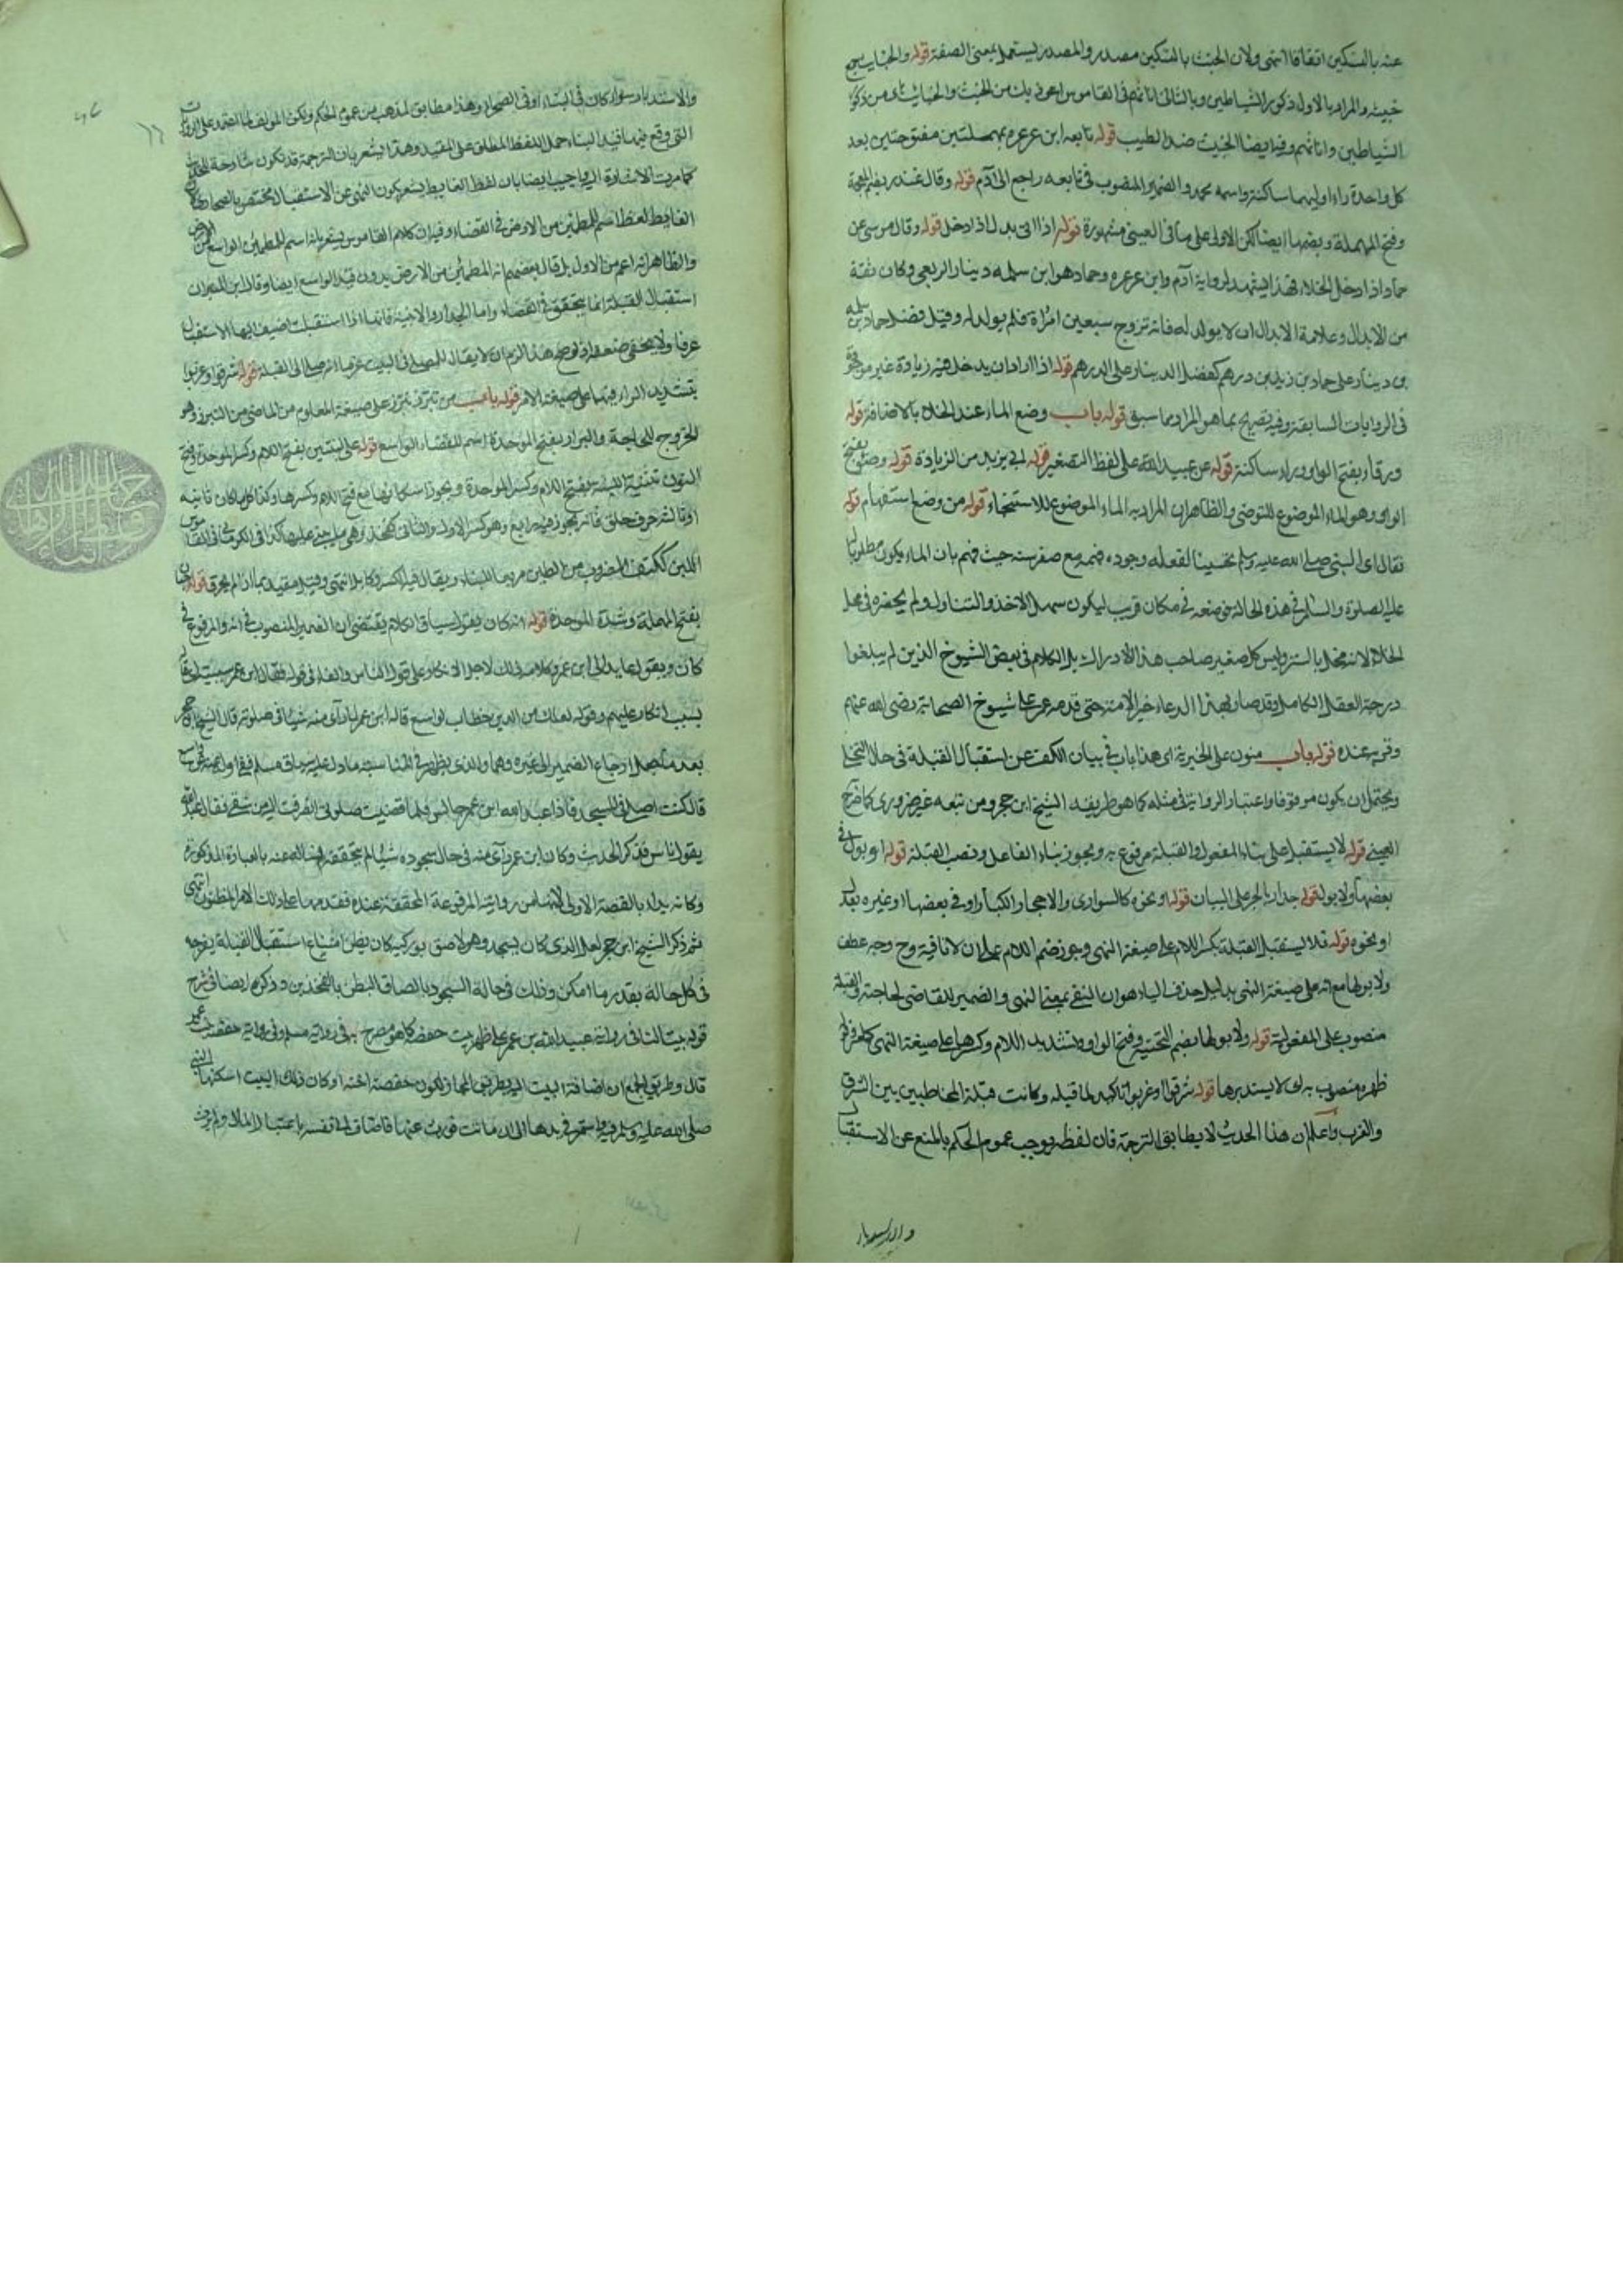 عنه بالتسكين اتفاقا انتهى ولان الخبث بالتسكين مصدر والمصدر يستعمل بمعنى الصفة قوله والخبايث جمع
خبيثه والمراد بالاول ذكور الشياطين وبالثانى اناثهم فى القاموس اعوذ بك من الخبث والخبائث اى من ذكور
الشياطين واناثهم وفيه ايضا الخبيث ضد الطيب قوله تابعه ابن عرعره بمهملتين مفتوحتين بعد
كل واحدة راء اوليهما ساكنة واسمه محمد والضمير المنصوب فى تابعه راجع الى آدم قوله وقال غندر بضم المعجمة
وفتح المهملة وبضمها ايضا لكن الاولى على ما فى العينى مشهورة قوله اذا اتى بدل اذا دخل قوله وقال موسى عن
حماد اذا دخل الخلاء فهذا يشهد لرواية آدم وابن عرعره وحماد هو ابن سلمه دينار الربعى وكان ثقة
من الابدال وعلامة الابدال ان لا يولد له فانه تزوج سبعين امراة فلم يولد له وقيل فضل حماد بن سلمه
بن دينار على حماد بن زيد بن درهم كفضل الدينار على الدرهم قوله اذا اراد ان يدخل هذه زيادة غير موجودة
فى الروايات السابقة وفيه تصريح بما هو المراد مما سبق قوله باب وضع الماء عند الخلاء بالاضافة قوله
ورقاء بفتح الواو وراء ساكنة قوله عن عبيد الله على لفظ المصغر قوله ابى يزيد من الزيادة قوله وضوء بفتح
الواو وهو الماء الموضوع للتوضى والظاهر ان المراد به الماء الموضوع للاستنجاء قوله من وضع استفهام قوله
فقال اى النبى صلى الله عليه وسلم تحسينا لفعله وجوده فهمه مع صغر سنه حيث فهم بان الماء يكون مطلوبا
عليه الصلوة والسلام فى هذه الحالة فوضعه فى مكان قريب ليكون سهل الاخذ والتناول ولم يحضره فى محل
الخلاء لانه مخل بالستر وليس كل صغير صاحب هذا الادراك بل الكلام فى بعض الشيوخ الذين لم يبلغوا
درجة العقل الكامل وقد صار بهذا الدعاء خير الامة حتى قدمه عمر على شيوخ الصحابة رضى الله عنهم
وقربه عنده قوله باب منون على الخبرية اى هذا باب فى بيان الكف عن استقبال القبلة فى حال التخلى
ويحتمل ان يكون موقوفا واعتبار الرواية فى مثله كما هو طريقة الشيخ ابن حجر ومن تبعه غير ضرورى كما صرح
العينى قوله لا يستقبل على بناء المفعول والقبلة مرفوع به ويجوز بناء الفاعل ونصب القبلة قوله او بول فى
بعضها ولا بول قوله جدار بالجر على البيان قوله او نحوه كالسوارى والاحجار الكبار او فى بعضها او غيره بدل
او نحوه قوله فلا يستقبل القبلة بكسر اللام على صيغة النهى ويجوز ضم اللام على ان لا نافية وح وجه عطف
ولا يولها مع انه على صيغة النهى بدليل حذف الياء هو ان النفى بمعنى النهى والضمير للقاضى لحاجته والقبلة
منصوب على المفعولية قوله ولا يولها بضم التحتية وفتح الواو وتشديد اللام وكسرها على صيغة النهى
ظهره منصوب به اى لا يستدبرها قوله شرقوا او غربوا تاكيد لما قبله وكانت قبلة المخاطبين بين الشرق
والغرب واعلم ان هذا الحديث لا يطابق الترجمة فان لفظه يوجب عموم الحكم بالمنع عن الاستقبال
والاستدبار
والاستدبار سواء كان فى البناء او فى الصحارى وهذا مطابق لمذهب من عموم الحكم ولكن المولف لما اعتمد على الروايات
التى وقع فيها قيد البناء حمل اللفظ المطلق على المقيد وهذا يشعر بان الترجمة قد تكون شارحة للحديث
كما مرت الاشارة اليه واجيب ايضا بان لفظ الغايط يشعر بكون النهى عن الاستقبال مختص بالصحارى
الغايط لغة اسم للمطمئن من الارض فى الفضاء وفيه ان كلام القاموس يشعر بانه اسم للمطمئن الواسع من الارض
والظاهر انه اعم من الاول بل قال بعضهم انه المطمئن من الارض بدون قيد الواسع ايضا وقال ابن المنير ان
استقبال القبلة انما يتحقق فى الفضاء واما الجدار والابنية فانها اذا استقبلت اضيف اليها الاستقبال
عرفا ولا يخفى ضعفه اذ لو صح هذا لزم ان لا يقال للمصلى فى البيت عرفا انه صلى الى القبلة قوله شرقوا وغربوا
بتشديد الراء فيهما على صيغة الامر قوله باب من تبرز تبرز على صيغة المعلوم من الماضى من التبرز وهو
الخروج للحاجة والبراز بفتح الموحدة اسم للفضاء الواسع قوله على لبنتين بفتح اللام وكسر الموحدة وفتح
النون تثنية اللبنة بفتح اللام وكسر الموحدة ويجوز اسكانها مع فتح اللام وكسرها وكذا كل ما كان ثانيه
او ثالثه حرف حلق فانه يجوز فيه رابع وهو كسر الاول والثانى كفخذ
اللبن ككتف المضروب من الطين مربعا للبناء ويقال فيه بالكسر
بفتح المهملة وشدة الموحدة قوله انه كان يقول سياق الكلام يقتضى ان الضمير المنصوب فى انه والمرفوع فى
كان ويقول عايد الى ابن عمر وكلامه ذلك لاجل الانكار على قول الناس والفاء فى قوله فقال ابن عمر سببية
بسبب انكار عليهم وقوله لعلك من الذين خطاب لواسع قاله ابن عمر لما رأى منه شيئا فى صلوته قال الشيخ ابن حجر
قال كنت اصلى فى المسجد فاذا عبد الله ابن عمر جالس فلما قضيت صلوتى انصرفت اليه من شقى فقال عبد الله
يقول ناس فذكر الحديث وكان ابن عمر رأى منه فى حال سجوده شيئا لم يتحققه فساله عنه بالعبارة المذكورة
وكانه بدأ بالقصة الاولى لانها من روايته المرفوعة المحققة عنده فقدمها على ذلك الامر المظنون انتهى
ثم ذكر الشيخ ابن حجر لعل الذى كان يسجد وهو لاصق بوركيه كان يظن امتناع استقبال القبلة بفرجه
فى كل حالة بقدر ما امكن وذلك فى حالة السجود بالصاق البطن بالفخذين وذكره ايضا فى شرح
قوله بيت لنا فى رواية عبيد الله بن عمر على ظهر بيت حفصة كما هو مصرح به فى رواية مسلم
قال وطريق الجمع ان اضافة البيت اليه بطريق المجاز لكون حفصة اخته او كان ذلك البيت اسكنها النبى
صلى الله عليه وسلم فيه واستمر فى يدها الى ان ماتت فورث عنها فاضاف الى نفسه باعتبار المال